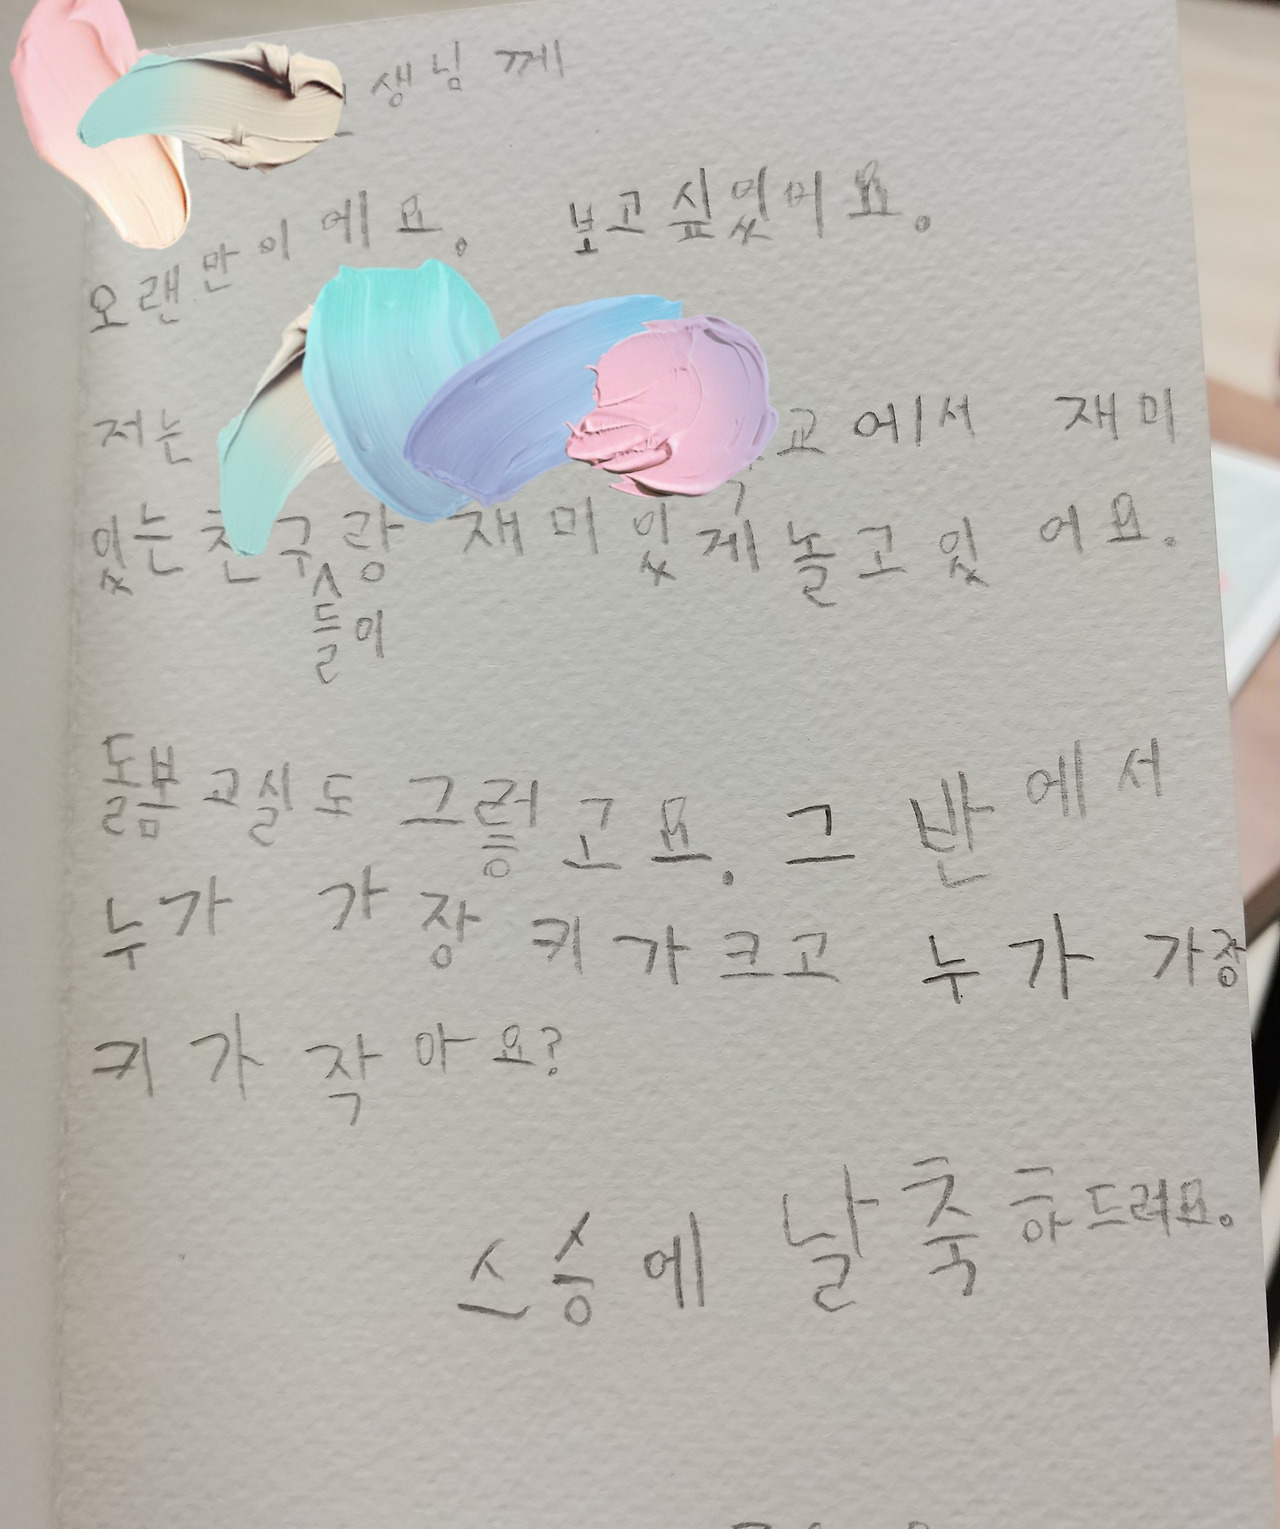 생님께
오랜만이에요. 보고싶었어요.
저는 교에서 재미
있는 친구랑 재미있게 놀고 있어요.
들이
돌봄교실도 그렇고요. 그 반에서
누가 가장 키가크고 누가 가장
키가 작아요?
스승에 날 축하드려요.